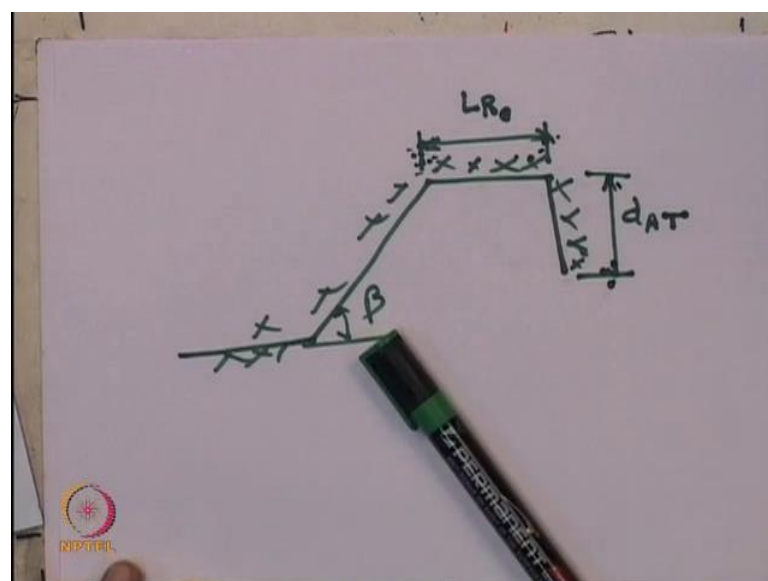 LRe
dAT
β
PERMANENT
NPTEL